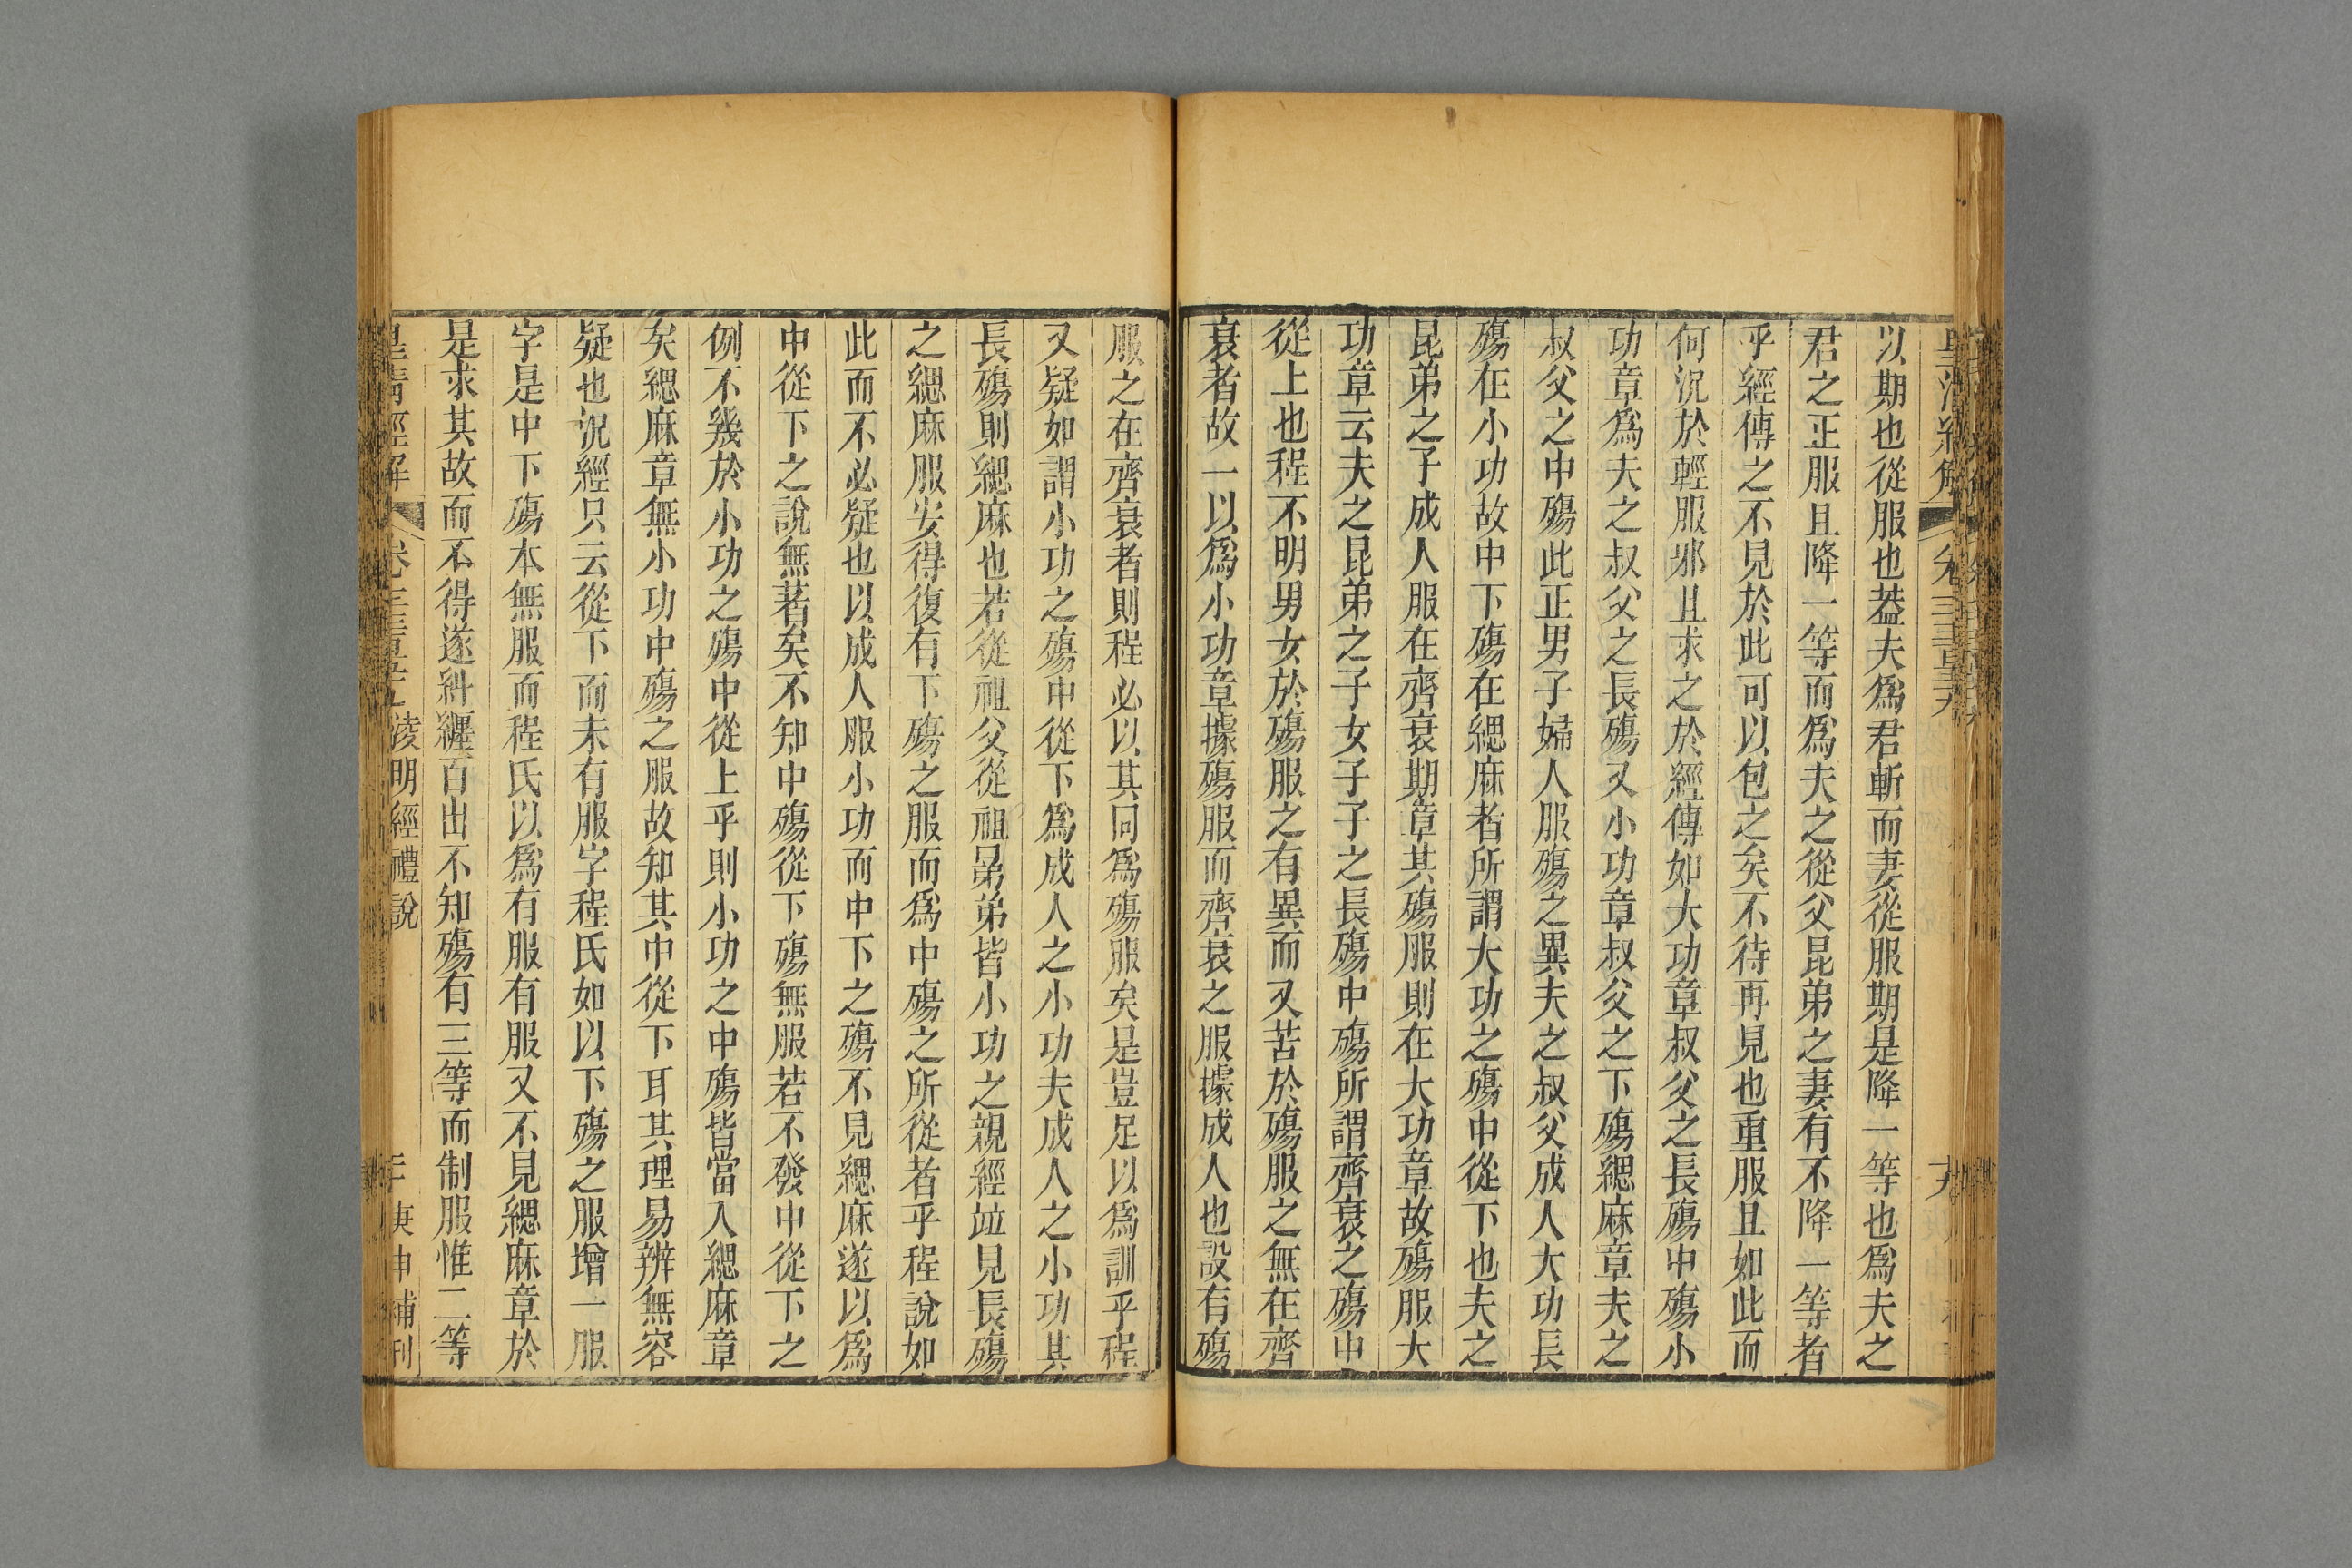 以期也從服也葢夫爲君斬而妻從服期是降一等也爲夫之
君之正服且降一等而爲夫之從父昆弟之妻有不降一等者
乎經傳之不見於此可以包之矣不待再見也重服且如此而
何況於輕服邪且求之於經傳如大功章叔父之長殤中殤小
功章爲夫之叔父之長殤又小功章叔父之下殤緦麻章夫之
叔父之中殤此正男子婦人服殤之異夫之叔父成人大功長
殤在小功故中下殤在緦麻者所謂大功之殤中從下也夫之
昆弟之子成人服在齊衰期章其殤服則在大功章故殤服大
功章云夫之昆弟之子女子子之長殤中殤所謂齊衰之殤中
從上也程不明男女於殤服之有異而又苦於殤服之無在齊
衰者故一以爲小功章據殤服而齊衰之服據成人也設有殤
服之在齊衰者則程必以其同爲殤服矣是豈足以爲訓乎程
又疑如謂小功之殤中從下爲成人之小功夫成人之小功其
長殤則緦麻也若從祖父從祖昆弟皆小功之親經竝見長殤
之緦麻服安得復有下殤之服而爲中殤之所從者乎程說如
此而不必疑也以成人服小功而中下之殤不見緦麻遂以爲
中從下之說無著矣不知中殤從下殤無服若不發中從下之
例不幾於小功之殤中從上乎則小功之中殤皆當入緦麻章
矣緦麻章無小功中殤之服故知其中從下耳其理易辨無容
疑也況經只云從下而未有服字程氏如以下殤之服增一服
字是中下殤本無服而程氏以爲有服有服又不見緦麻章於
是求其故而不得遂糾纒百出不知殤有三等而制服惟二等
皇清經解 淩明經禮說 庚申補刊